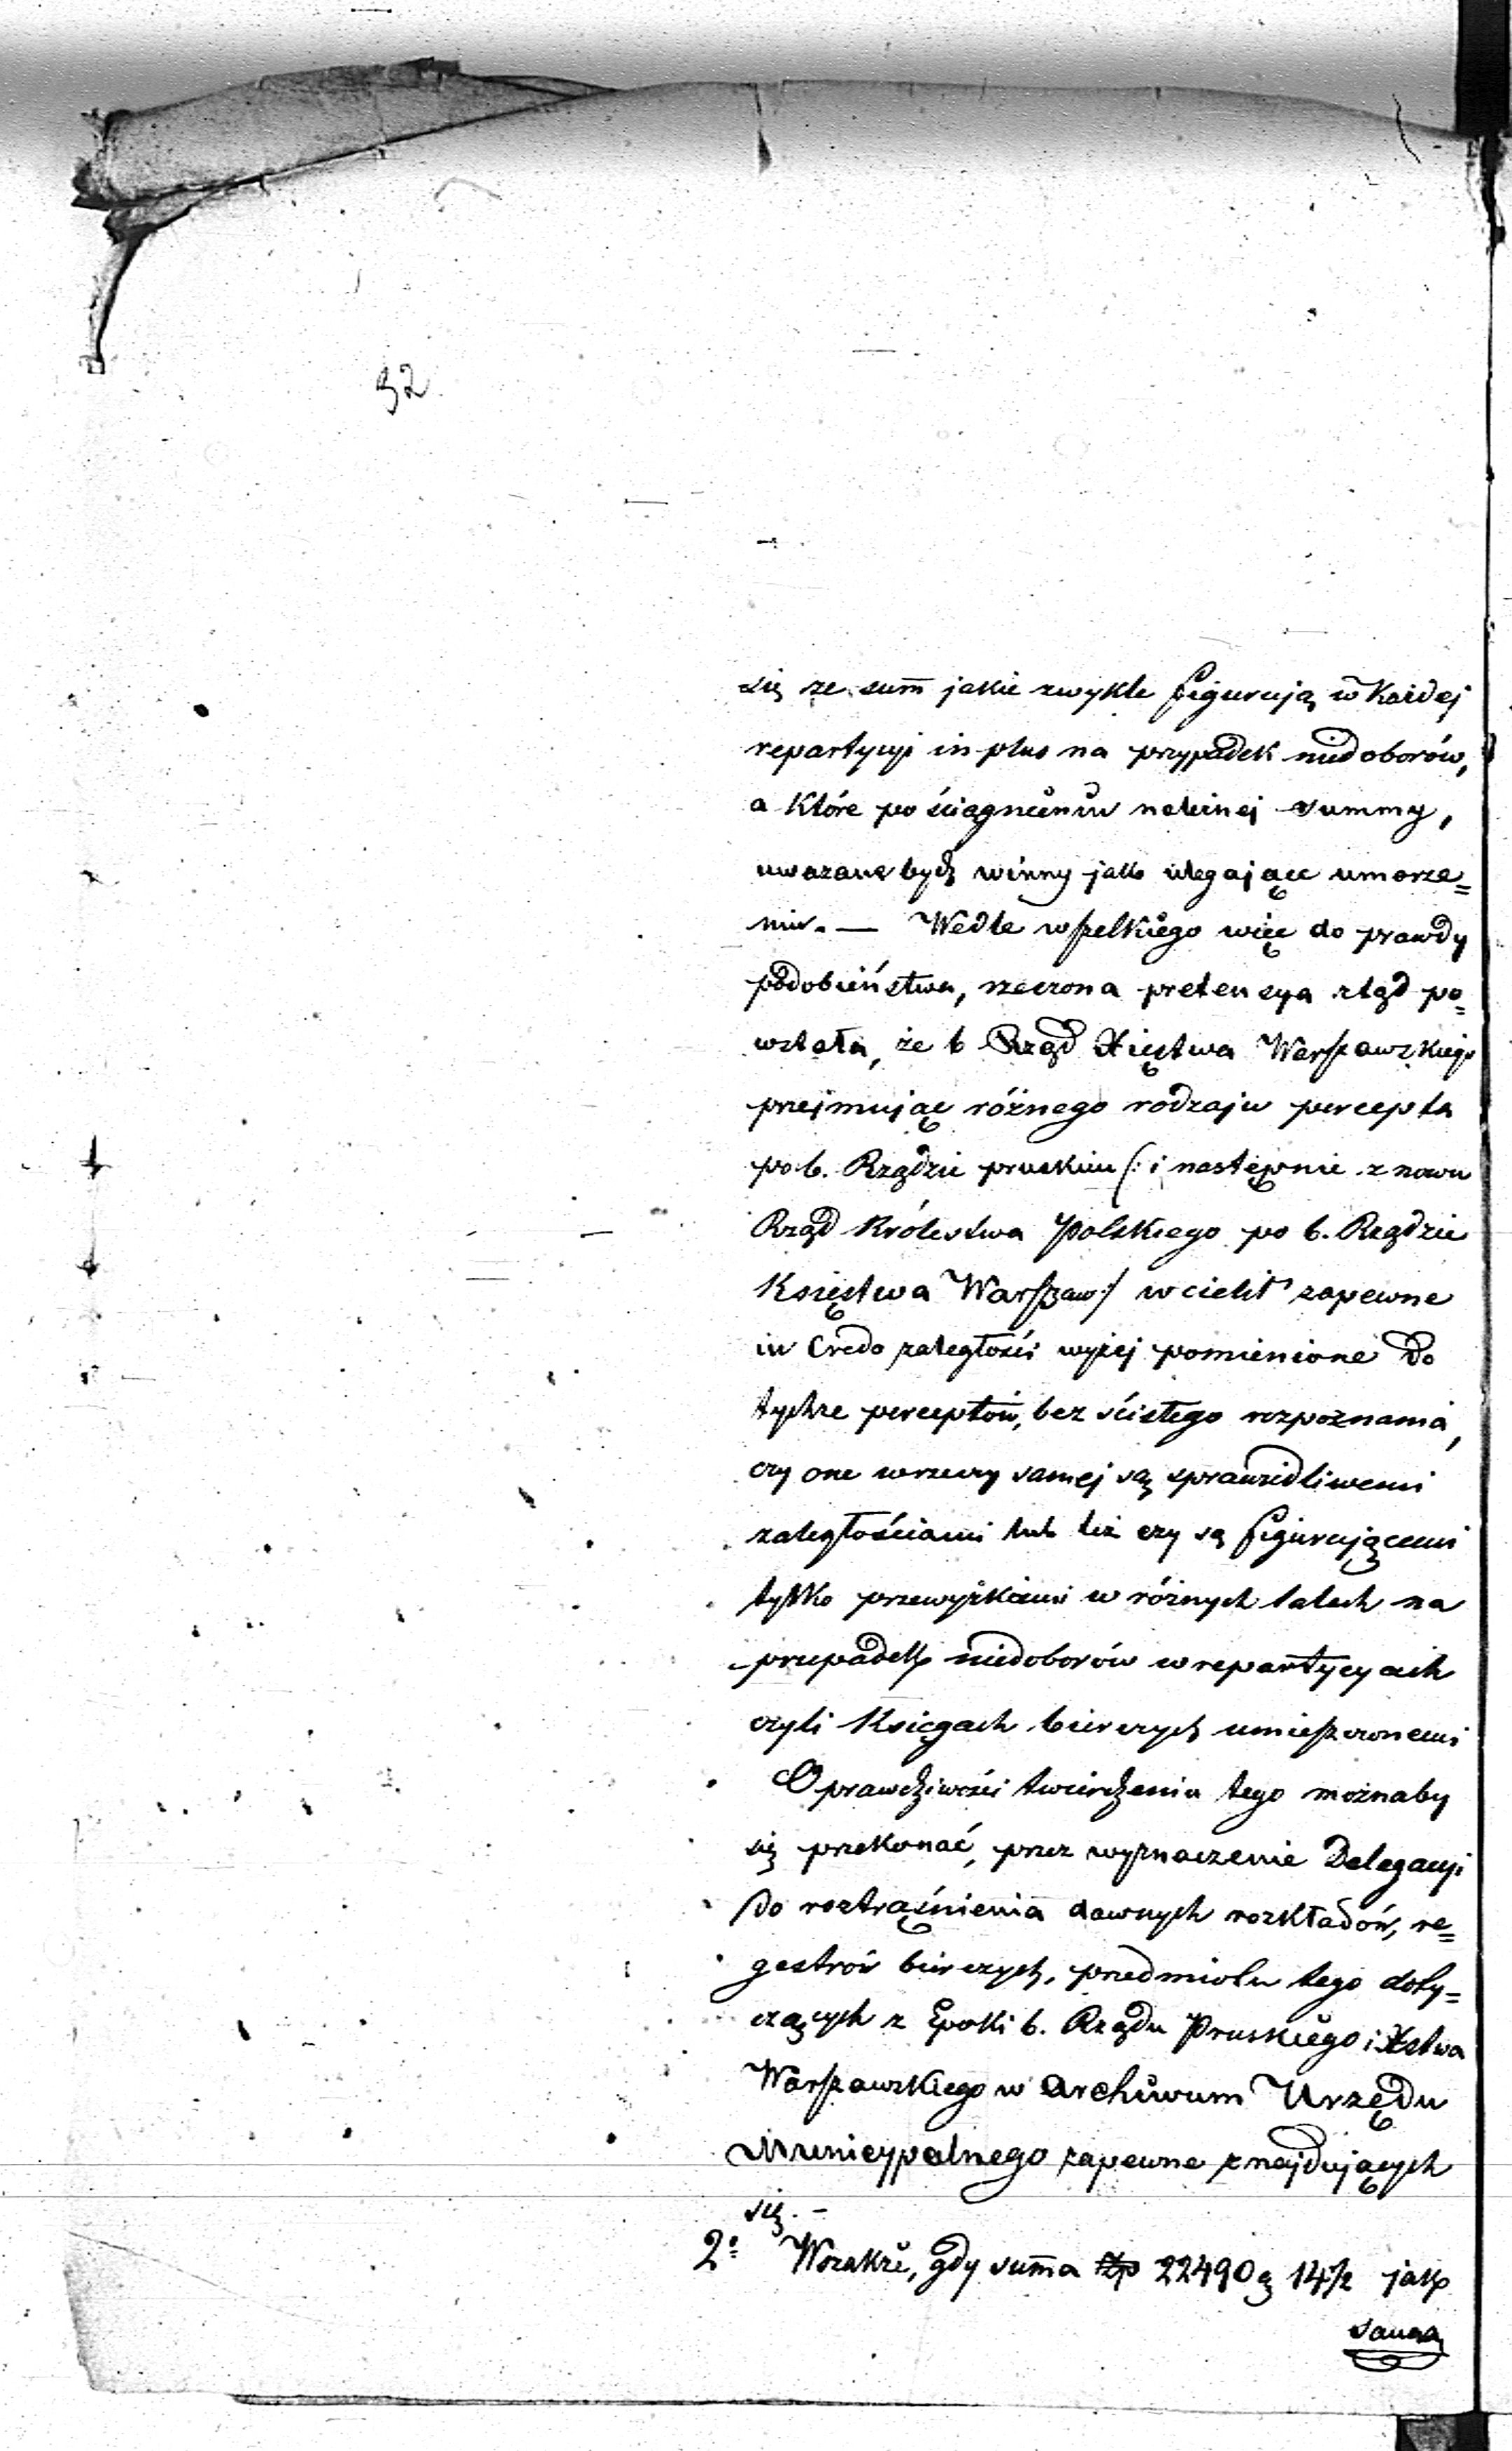 32
się ze sum̄ jakie zwykle figurują w Każdej
repartycyi in plus na przypadek niedoborów,
a Które po ściągnieniu należnej summy,
uważane bydź winny jako ulegające umorze=
niu. — Wedle wszelkiego więc do prawdy
podobieństwa, rzeczona pretensya ztąd po=
wstała, że b Rząd Xięstwa Warszawskiego
przejmując różnego rodzaju percepta
po b. Rządzie pruskim (: i następnie znowu
Rząd Królestwa Polskiego po b. Rządzie
Księstwa Warszaw:/ wcielił zapewne
in Credo zaległości wyżej pomienione do
tychże perceptów, bez ścisłego rozpoznania,
czy one w rzeczy samej są sprawiedliwemi
zaległościami lub też czy są figurującemi
tylko przewyżkami w różnych latach na
przypadek niedoborów w repartycyach
czyli Księgach bierczych umieszczonemi
O prawdziwości twierdzenia tego możnaby
się przekonać, przez wyznaczenie Delegacyi
do roztrząśnienia dawnych rozkładów, re=
gestrów bierczych, przedmiotu tego doty=
czących z Epoki b. Rządu Pruskiego i Xstwa
Warszawskiego w Archiwum Urzędu
Municypalnego zapewne znajdujących
się. –
2º Wszakże, gdy sum̄a Zp 22490 g 14½ jako
sama